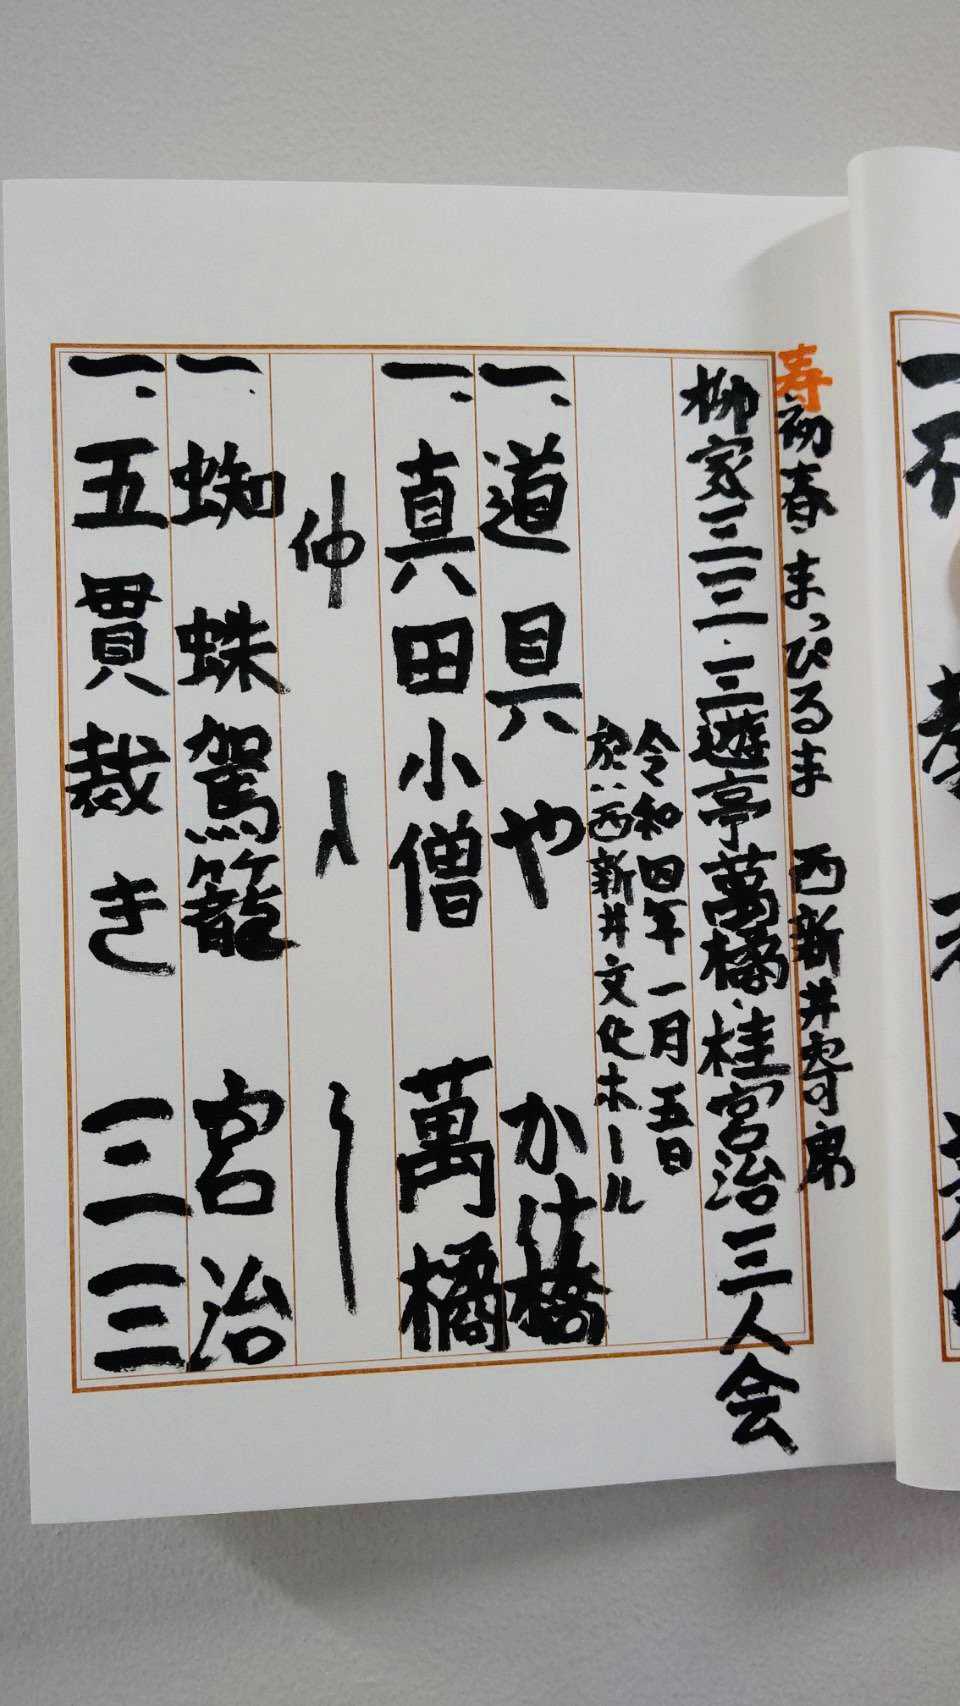 寿 初春 まっぴるま 西新井寄席
柳家三三・三遊亭萬橘・桂宮治三人会
令和四年一月五日
於:西新井文化ホール
一、道具や かけ橋
一、真田小僧 萬橘
仲入り
一、蜘蛛駕籠 宮治
一、五貫裁き 三三